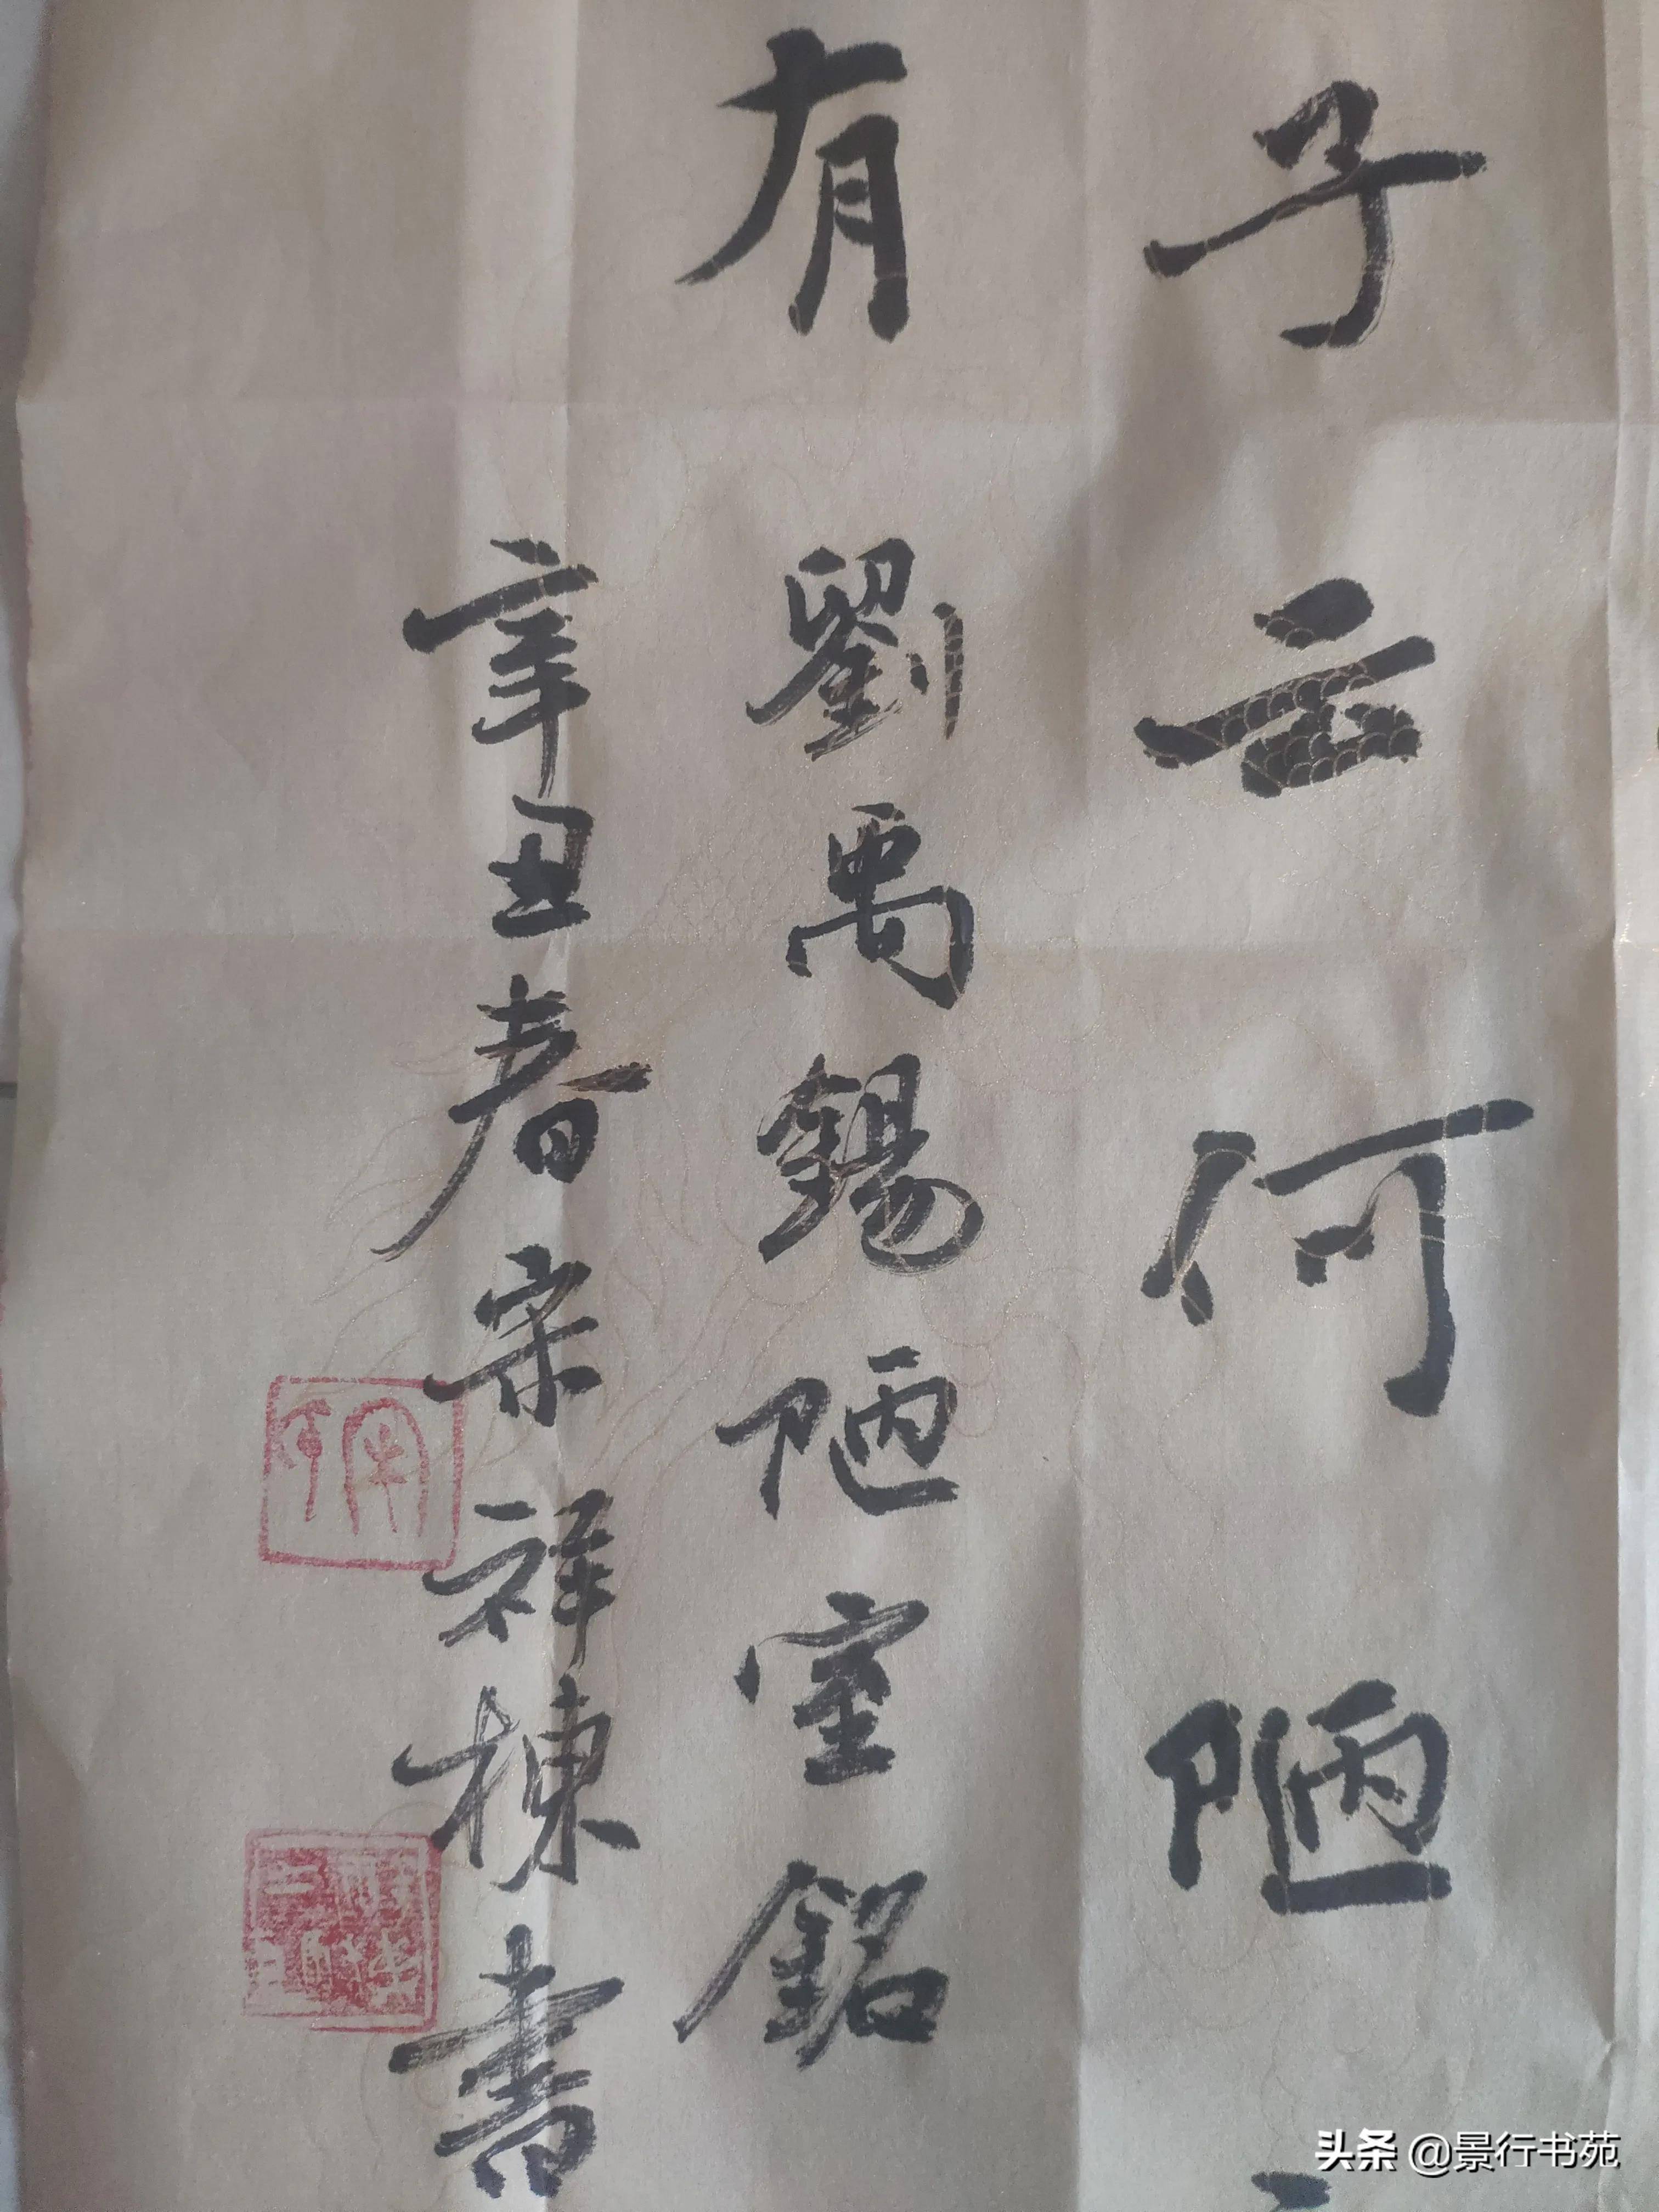 子云何陋
有
劉禹錫陋室銘
辛丑春宗祥棟書
头条 @景行书苑